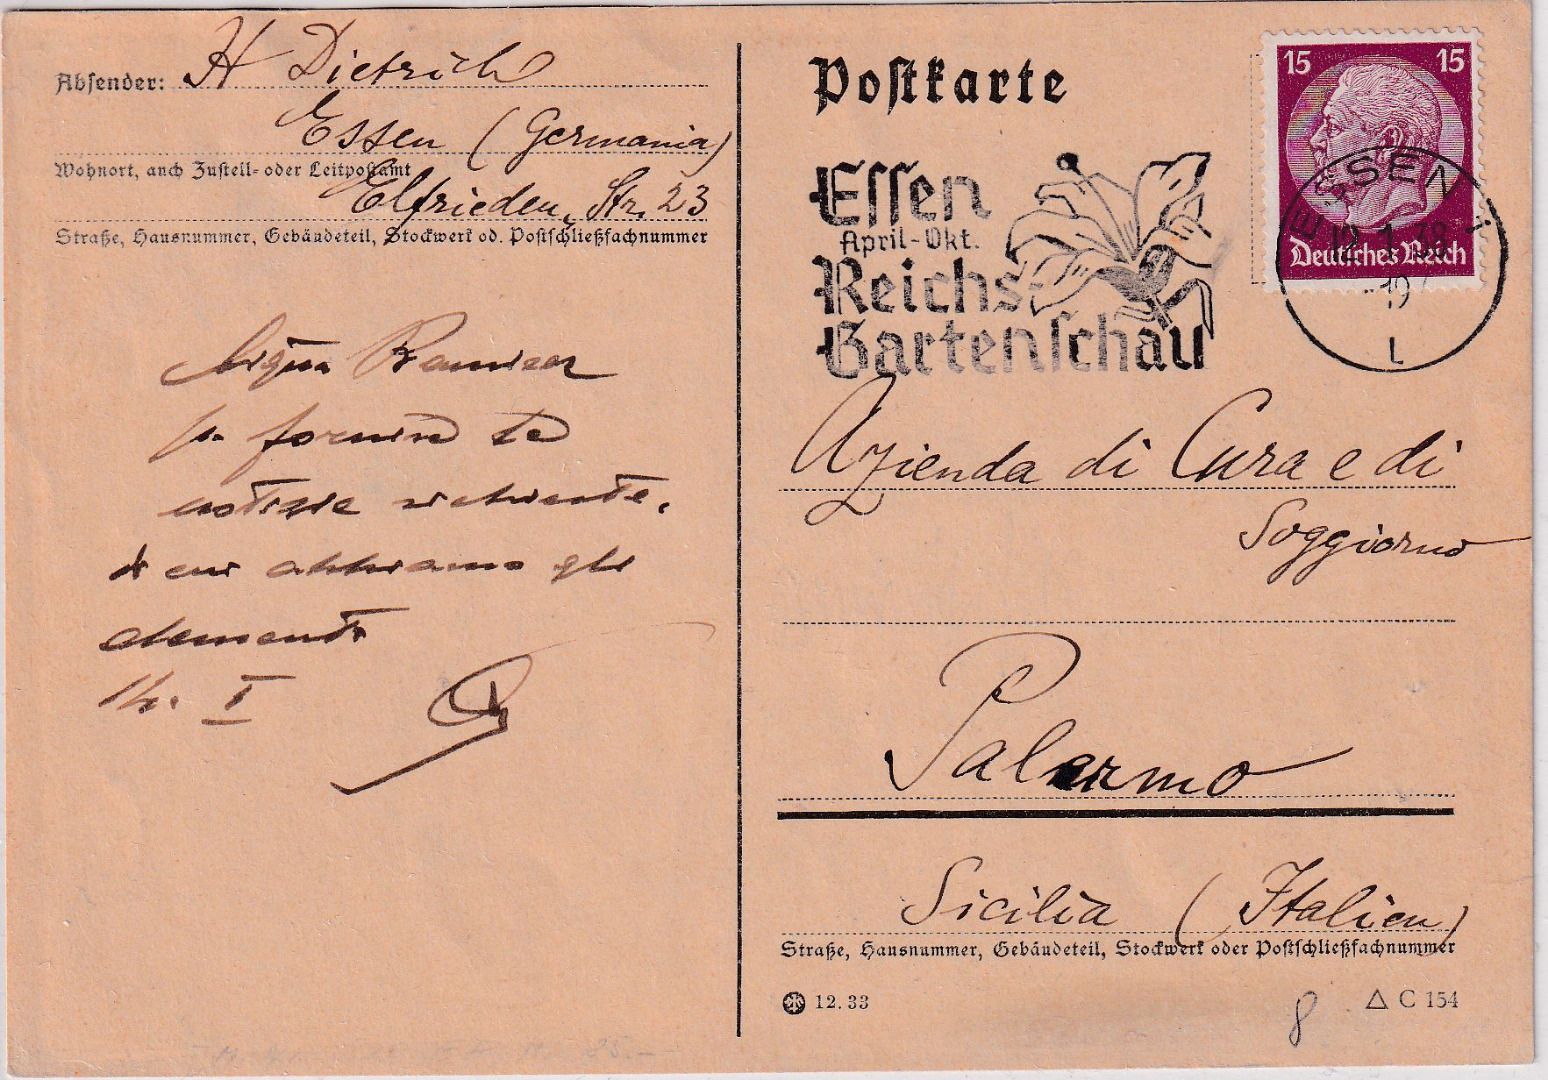 Absender: H Dietrich
Essen (Germania)
Wohnort, auch Zustell- oder Leitpostamt
Elfrieden Str. 23
Straße, Hausnummer, Gebäudeteil, Stockwerk od. Postschließfachnummer
p. fornire le
notizie richieste,
di cui abbiamo gli
elementi
14. I
Postkarte
Essen
April-Okt.
Reichs-
Gartenschau
15 15
Deutsches Reich
ESSEN 1
12.1.38
19
L
Azienda di Cura e di
Soggiorno
Palermo
Sicilia (Italien)
Straße, Hausnummer, Gebäudeteil, Stockwerk oder Postschließfachnummer
12.33
△ C 154
8